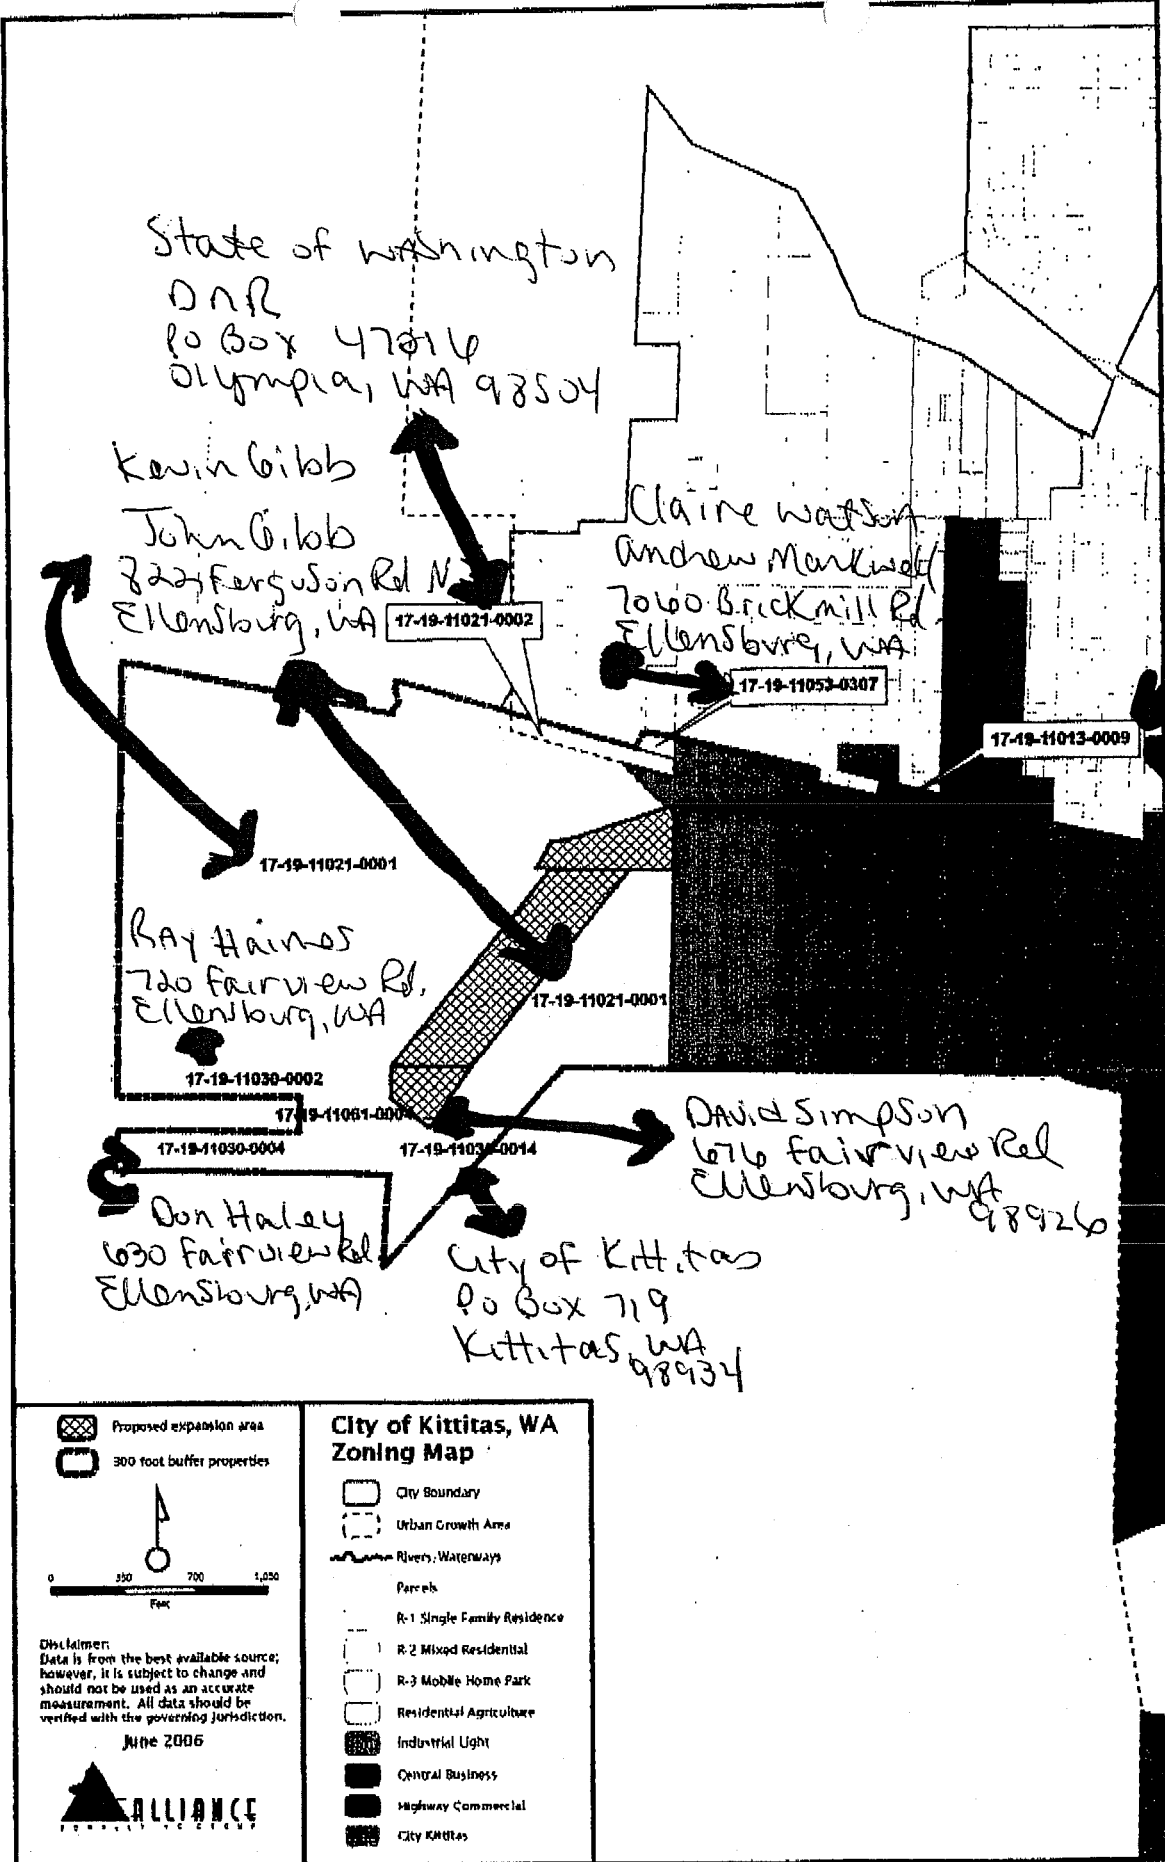 State of Washington
DNR
PO Box 47016
Olympia, WA 98504
Kevin Gibb
John Gibb
8221 Ferguson Rd N
Ellensburg, WA
17-19-11021-0002
Claire Watson
Andrew Markwell
7060 Brickmill Rd
Ellensburg, WA
17-19-11053-0307
17-19-11013-0009
17-19-11021-0001
Ray Haines
720 Fairview Rd,
Ellensburg, WA
17-19-11021-0001
17-19-11030-0002
17-19-11061-000
17-19-11030-0004
17-19-1103 -0014
David Simpson
676 Fairview Rd
Ellensburg, WA
98926
Don Haley
630 Fairview Rd
Ellensburg, WA
City of Kittitas
PO Box 719
Kittitas, WA
98934
Proposed expansion area
300 foot buffer properties
0 350 700 1,050
Feet
Disclaimer:
Data is from the best available source;
however, it is subject to change and
should not be used as an accurate
measurement. All data should be
verified with the governing jurisdiction.
June 2006
ALLIANCE
City of Kittitas, WA
Zoning Map
City Boundary
Urban Growth Area
Rivers, Waterways
Parcels
R-1 Single Family Residence
R-2 Mixed Residential
R-3 Mobile Home Park
Residential Agriculture
Industrial Light
Central Business
Highway Commercial
City Kittitas